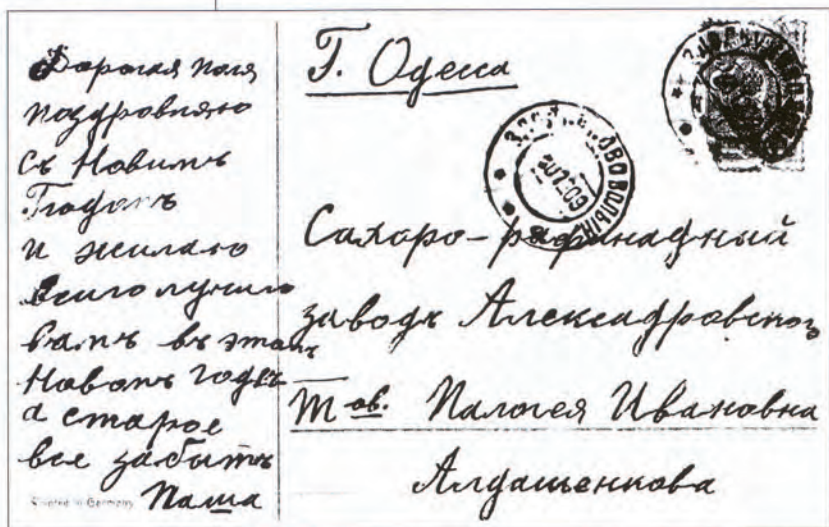 Дорогая поля
поздровляю
съ Новимъ
Годомъ
и жилаю
всиго лучшего
вамъ въ этомъ
Новомъ годъ
а старое
все забыть
Паша
Printed in Germany
Г. Одесса
Сахаро-рафинадный
заводъ Александровского
Тов. Палогея Ивановна
Алдашенкова